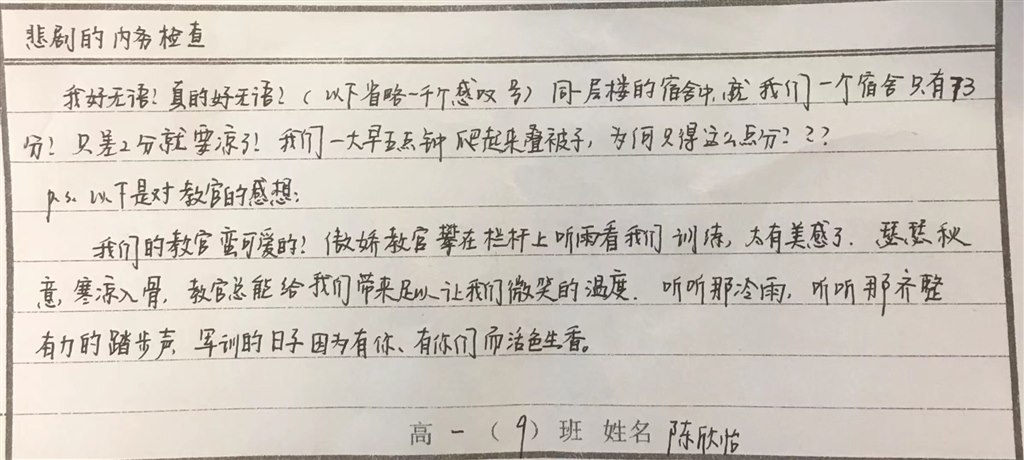 悲剧的内务检查
我好无语！真的好无语！（以下省略一千个感叹号）同一层楼的宿舍中，就我们一个宿舍只有73
分！只差2分就要凉了！我们一大早五点钟爬起来叠被子，为何只得这么点分？？？
p.s. 以下是对教官的感想：
我们的教官蛮可爱的！傲娇教官攀在栏杆上听雨看我们训练，太有美感了．瑟瑟秋
意，寒凉入骨，教官总能给我们带来足以让我们微笑的温度．听听那冷雨，听听那齐整
有力的踏步声，军训的日子因为有你、有你们而活色生香。
高一（9）班 姓名 陈欣怡